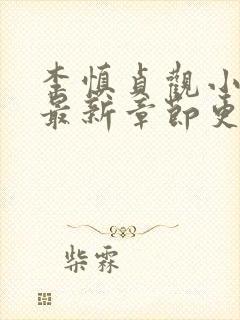 李慎貞觀小
最新章節更
柴霖